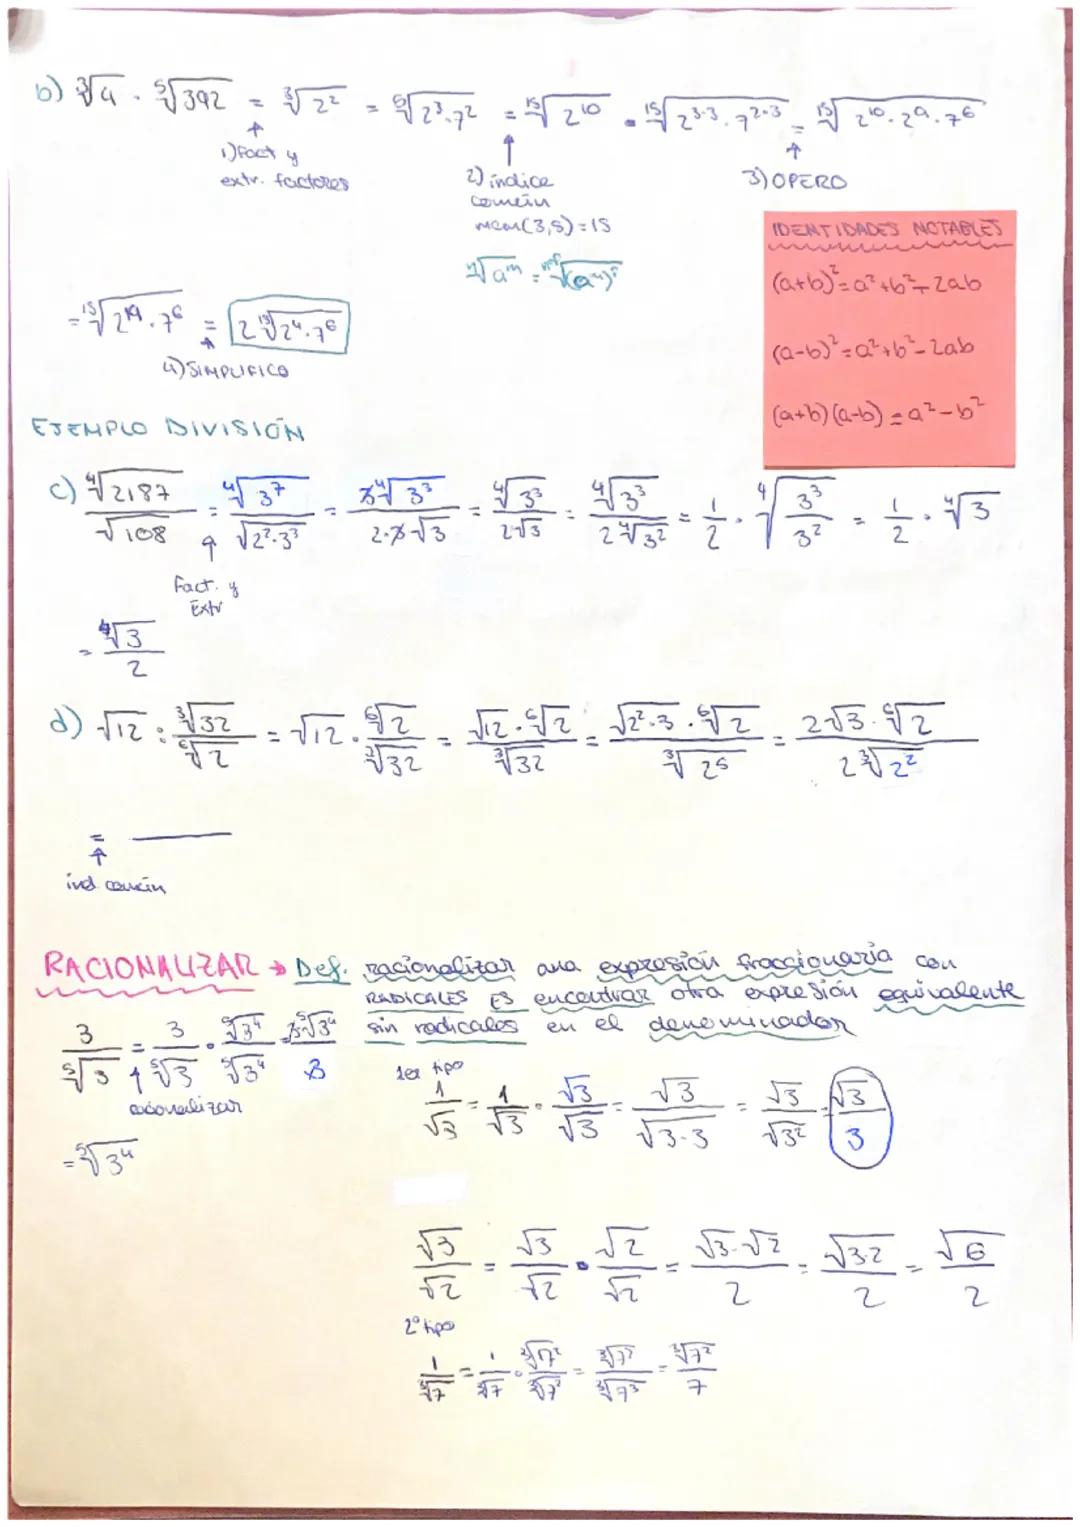 b) ∛4 · ⁵√392 = ∛2² = ⁵√2³·7² = ¹⁵√2¹⁰ · ¹⁵√2³·³·7²·³ = ¹⁵√2¹⁰·2⁹·7⁶
1) fact y
extr. factores
2) índice
común
mcm(3,5)=15
3) OPERO
ⁿ√aᵐ = ⁿ·ᵖ√(aᵐ)ᵖ
IDENTIDADES NOTABLES
(a+b)²=a²+b²+2ab
(a-b)²=a²+b²-2ab
(a+b)(a-b)=a²-b²
= ¹⁵√2¹⁹·7⁶ = 2 ¹⁵√2⁴·7⁶
4) SIMPLIFICO
EJEMPLO DIVISIÓN
c) ⁴√2187 / √108 = ⁴√3⁷ / √2²·3³ = 3⁴√3³ / 2·3√3 = ⁴√3³ / 2√3 = ⁴√3³ / 2⁴√3² = 1/2 · ⁴√(3³/3²) = 1/2 · ⁴√3
Fact. y
Extr
= ⁴√3 / 2
d) √12 : ∛32 / ⁶√2 = √12 · ⁶√2 / ∛32 = √12·⁶√2 / ∛32 = √2²·3 · ⁶√2 / ∛2⁵ = 2√3·⁶√2 / 2∛2²
=
ind común
RACIONALIZAR → Def. racionalizar una expresión fraccionaria con
RADICALES ES encontrar otra expresión equivalente
sin radicales en el denominador
3/⁵√3 = 3/⁵√3 · ⁵√3⁴/⁵√3⁴ = 3⁵√3⁴/3
racionalizar
= ⁵√3⁴
1er tipo
1/√3 = 1/√3 · √3/√3 = √3/√3·3 = √3/√3² = √3/3
√3/√2 = √3/√2 · √2/√2 = √3·√2/2 = √3·2/2 = √6/2
2º tipo
1/∛7 = 1/∛7 · ∛7²/∛7² = ∛7²/∛7³ = ∛7²/7